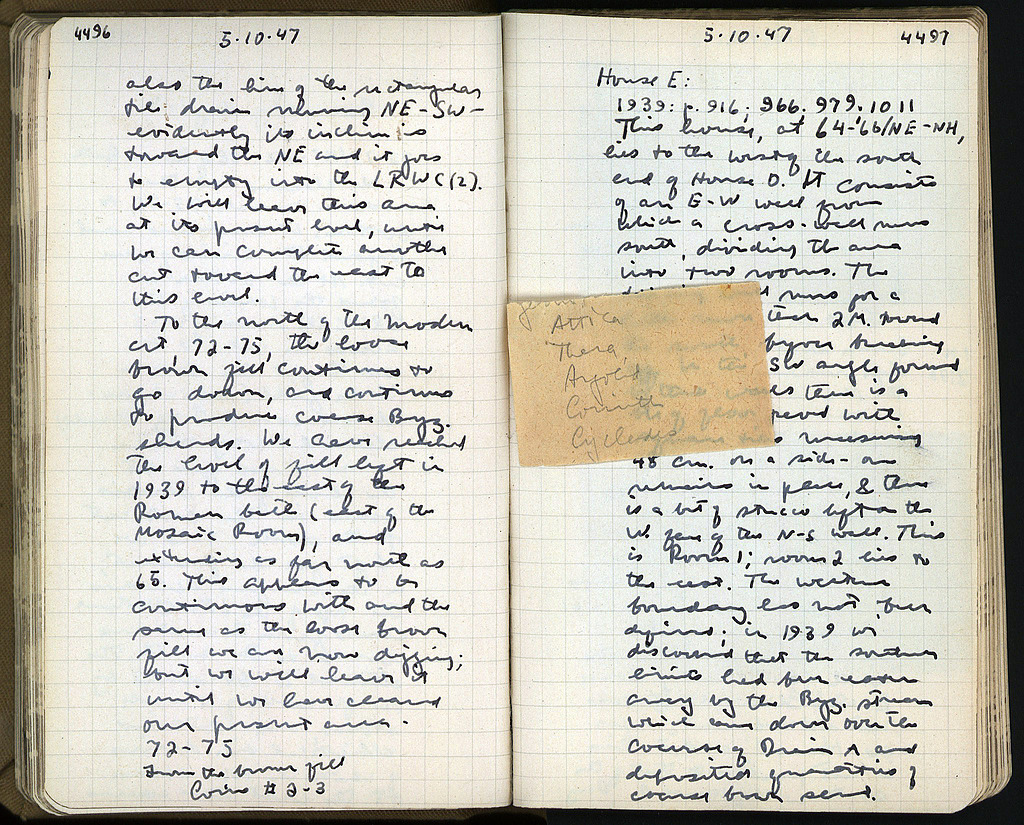 4496
5.10.47
also the line of the rectangular
tile drain running NE-SW-
evidently its incline is
toward the NE and it goes
to empty into the LRWC(2).
We will leave this area
at its present level, until
we can complete another
cut toward the east to
this level.
To the north of the modern
cut, 72-75, the loose
brown fill continues to
go down, and continues
to produce coarse Byz.
sherds. We have reached
the level of fill left in
1939 to the east of the
Roman bath (east of the
Mosaic Room), and
extending as far north as
65. This appears to be
continuous with and the
same as the loose brown
fill we are now digging;
but we will leave it
until we have cleared
our present area.
72-75
From the brown fill
Coins # 2-3
5.10.47
4497
House E:
1939: p. 916; 966. 979. 1011
This house, at 64-66/NE-NH,
lies to the west of the south
end of House D. It consists
of an E-W wall from
which a cross-wall runs
south, dividing the area
into two rooms. The
runs for a
than 2 M. toward
beyond
SW angle formed
there is a
paved with
measuring
48 cm. on a side - one
remains in place, & there
is a bit of stucco left on the
W. face of the N-S wall. This
is Room 1; room 2 lies to
the east. The western
boundary has not been
defined; in 1939 we
discovered that the southern
limits had been eaten
away by the Byz. stream
which came down over the
course of Drain A and
deposited quantities of
coarse brown sand.
Attica
Thera,
Argolid
Corinth
Cyclades